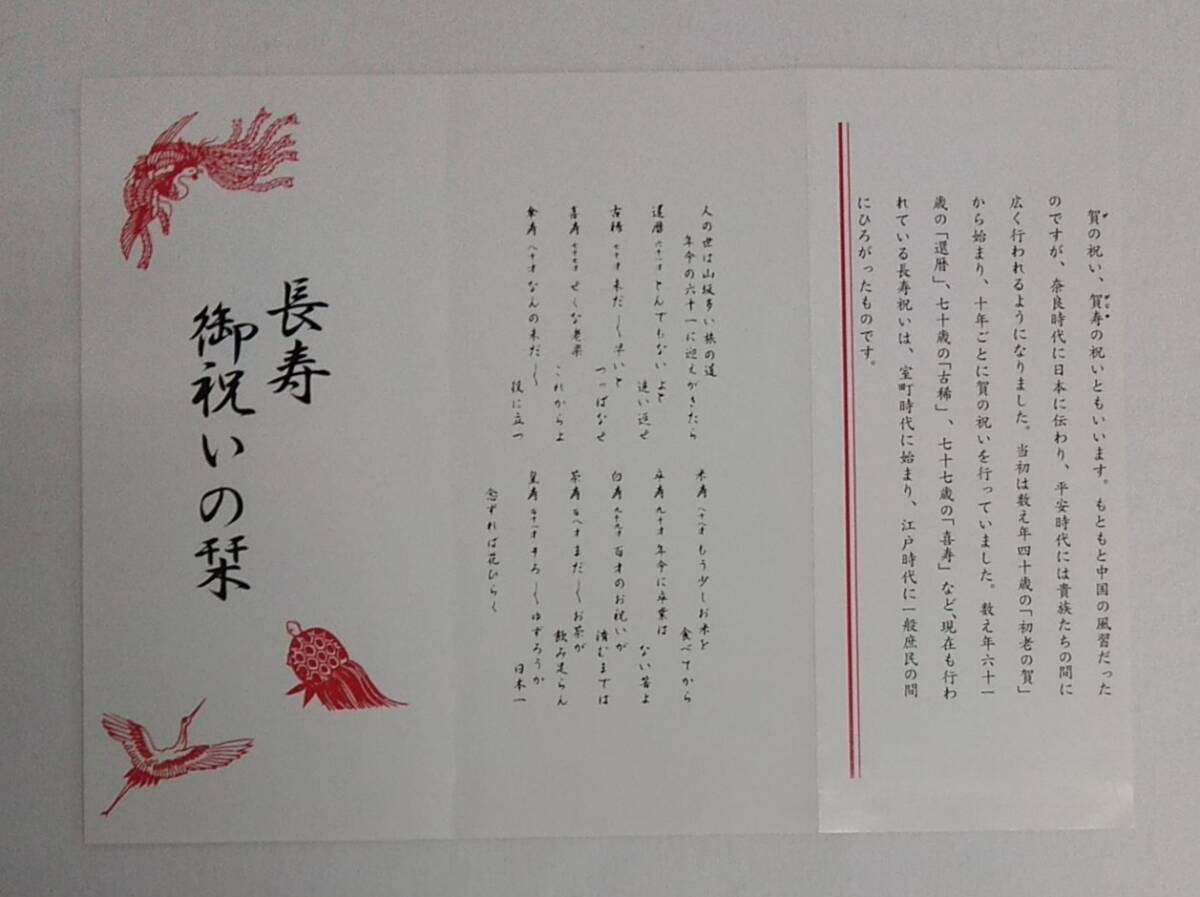 賀の祝い、賀寿の祝いともいいます。もともと中国の風習だった
のですが、奈良時代に日本に伝わり、平安時代には貴族たちの間に
広く行われるようになりました。当初は数え年四十歳の「初老の賀」
から始まり、十年ごとに賀の祝いを行っていました。数え年六十一
歳の「還暦」、七十歳の「古稀」、七十七歳の「喜寿」など、現在も行わ
れている長寿祝いは、室町時代に始まり、江戸時代に一般庶民の間
にひろがったものです。
人の世は山坂多い旅の道
年令の六十一に迎えがきたら
還暦 六十一才 とんでもないよと
追い返せ
古稀 七十才 まだ〳〵早いと
つっぱなせ
喜寿 七十七才 せくな老楽
これからよ
傘寿 八十才 なんのまだ〳〵
役に立つ
米寿 八十八才 もう少しお米を
食べてから
卒寿 九十才 年令に卒業は
ない筈よ
白寿 九十九才 百才のお祝いが
済むまでは
茶寿 百八才 まだ〳〵お茶が
飲み足らん
皇寿 百十一才 そろ〳〵ゆずろうか
日本一
念ずれば花ひらく
長寿
御祝いの栞